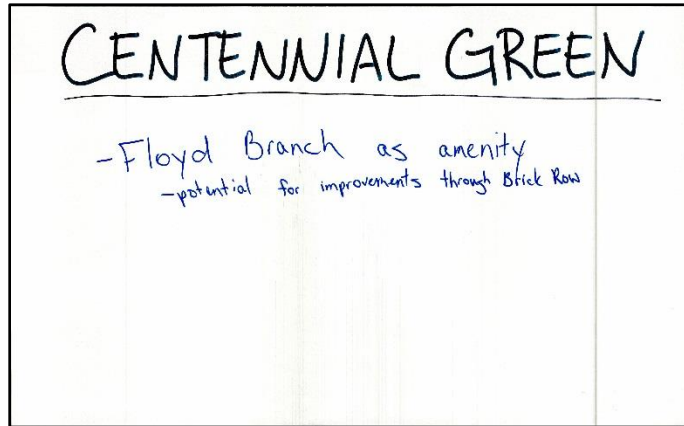 CENTENNIAL GREEN
-Floyd Branch as amenity
-potential for improvements through Brick Row